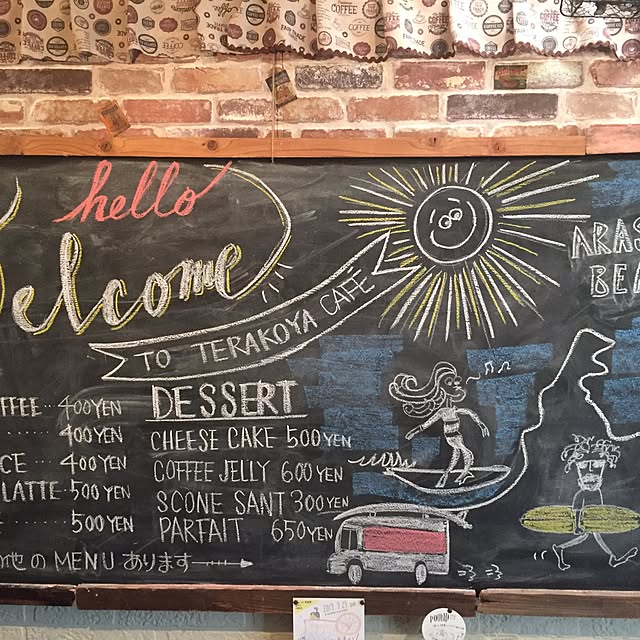 hello
Welcome
TO TERAKOYA CAFE
FFEE 400YEN
400YEN
CE 400YEN
LATTE 500YEN
500YEN
他の MENU あります
DESSERT
CHEESE CAKE 500YEN
COFFEE JELLY 600YEN
SCONE SANT 300YEN
PARFAIT 650YEN
ARAS
BEA
COFFEE